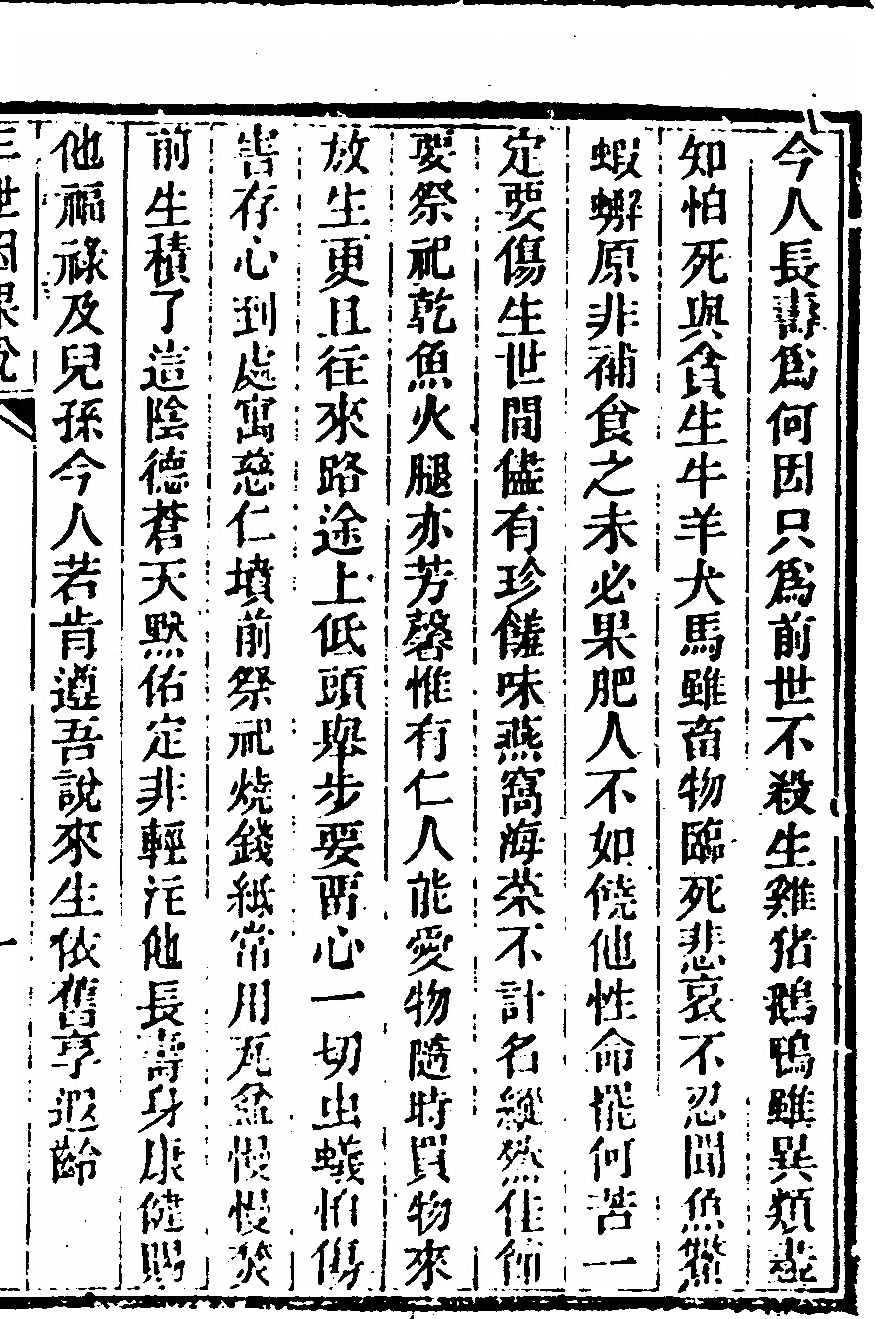 今人長壽爲何因只爲前世不殺生雞猪鵝鴨雖異類盡
知怕死與貪生牛羊犬馬雖畜物臨死悲哀不忍聞魚鱉
蝦蠏原非補食之未必果肥人不如饒他性命罷何苦一
定要傷生世間儘有珍饈味燕窩海菜不計名縱然佳節
要祭祀乾魚火腿亦芳馨惟有仁人能愛物隨時買物來
放生更且往來路途上低頭舉步要畱心一切虫蟻怕傷
害存心到處寓慈仁墳前祭祀烧錢紙常用瓦盆慢慢焚
前生積了這陰德蒼天黙佑定非輕注他長壽身康健賜
他福祿及兒孫今人若肯遵吾說來生依舊享遐齡
三世因果說
一